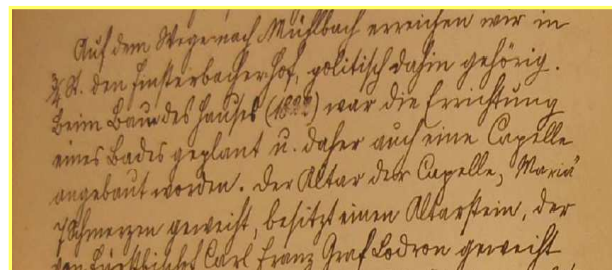 Auf dem Wege nach Mühlbach erreichen wir in
¾ St. den Finsterbacherhof, politisch dahin gehörig.
Beim Bau des Hauses (1822) war die Errichtung
eines Bades geplant u. daher auch eine Capelle
angebaut worden. Der Altar der Capelle, Mariä
7 Schmerzen geweiht, besitzt einen Altarstein, der
von Fürstbischof Carl Franz Graf Lodron geweiht